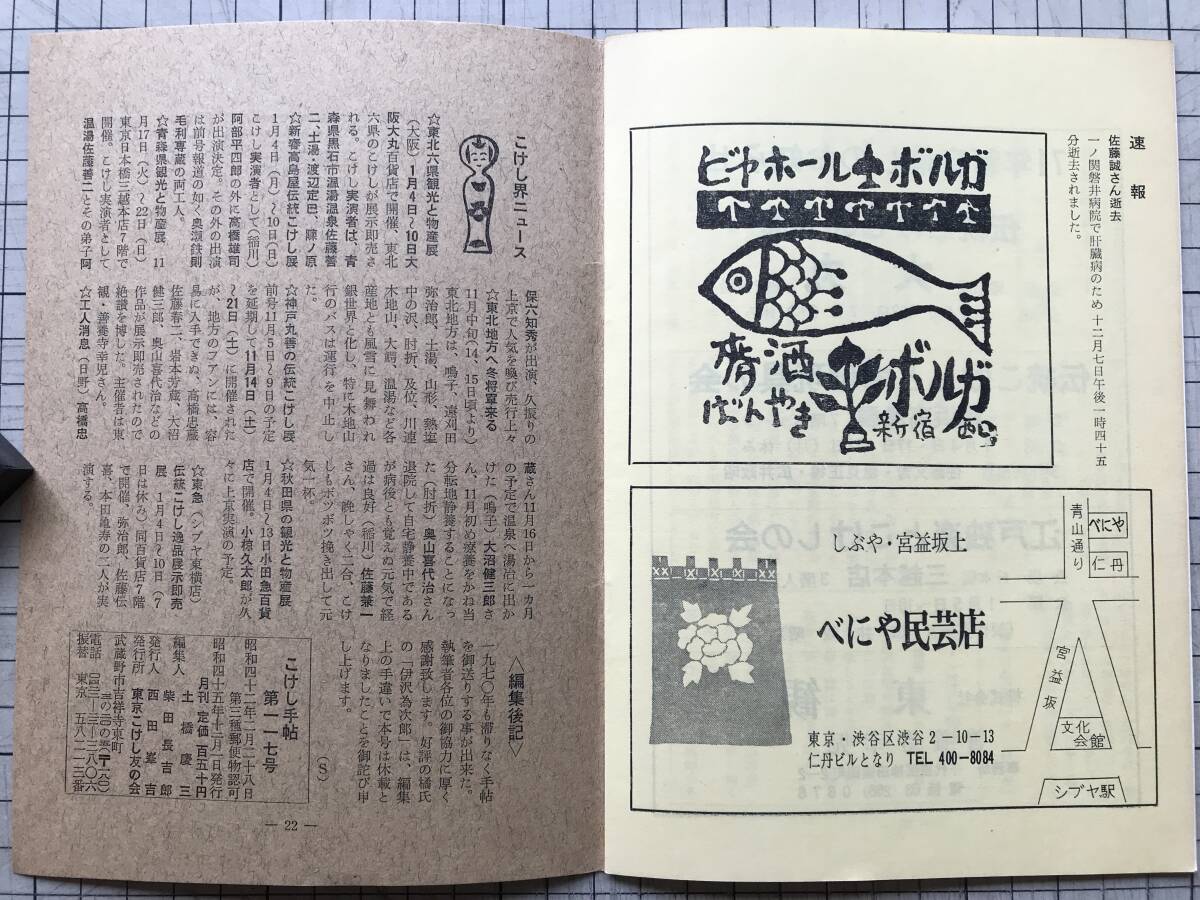 速報
佐藤誠さん逝去
一ノ関磐井病院で肝臓病のため 十二月七日午後一時四十五
分逝去されました。
ビヤホール ボルガ
酒
ばんやき
ボルガ
新宿西口
しぶや・宮益坂上
べにや民芸店
東京・渋谷区渋谷2-10-13
仁丹ビルとなり TEL 400-8084
青山通り
べにや
仁丹
宮益坂
文化
会館
シブヤ駅
こけし界ニュース
☆東北六県観光と物産展
(大阪) 1月4日〜10日大
阪大丸百貨店で開催、東北
六県のこけしが展示即売さ
れる。こけし実演者は、青
森県黒石市温湯温泉佐藤善
二、土湯・渡辺定巳、蔭ノ原
☆新春高島屋伝統こけし展
1月4日(月)〜10日(日)
こけし実演者として(稲川)
阿部平四郎の外に高橋雄司
が出演決定。その外の出演
は前号報道の如く奥瀬鉄則
毛利専蔵の両工人。
☆青森県観光と物産展 11
月17日(火)〜22日(日)
東京日本橋三越本店7階で
開催。こけし実演者として
温湯佐藤善二とその弟子阿
保六知秀が出演、久振りの
上京で人気を喚び売行上々
☆東北地方へ冬将軍来る
11月中旬(14、15日頃より)
東北地方は、鳴子、遠刈田
弥治郎、土湯、山形、熱塩
中の沢、肘折、及位、川連
木地山、大鰐、温湯など各
産地とも風雪に見舞われ
銀世界と化し、特に木地山
行のバスは運行を中止し
た。
☆神戸丸善の伝統こけし展
前号11月5日〜9日の予定
を延期して11月14日(土)
〜21日(土)に開催された
が、地方のファンには、容
易に入手できぬ、高橋忠蔵
佐藤春二、岩本芳蔵、大沼
健三郎、奥山喜代治などの
作品が展示即売されたので
絶讃を博した。主催者は東
観・善養寺幸児さん。
☆工人消息(日野)高橋忠
蔵さん11月16日から一カ月
の予定で温泉へ湯治に出か
けた(鳴子)大沼健三郎さ
ん、11月初め療養をかね当
分転地静養することになっ
た(肘折)奥山喜代治さん
退院して自宅静養中である
が病後とも覚えぬ元気で経
過は良好(稲川)佐藤兼一
さん、晩しゃく二合、こけ
しもボツボツ挽き出して元
気一杯。
☆秋田県の観光と物産展
1月4日〜13日小田急百貨
店で開催。小椋久太郎が久
々に上京実演の予定。
☆東急(シブヤ東横店)
伝統こけし逸品展示即売
展 1月4日〜10日(7
日は休み)同百貨店7階
で開催、弥治郎、佐藤伝
喜、本田亀寿の二人が実
演する。
〈編集後記〉
一九七〇年も滞りなく手帖
を御送りする事が出来た。
執筆者各位の御協力に厚く
感謝致します。好評の橘氏
の「伊沢為次郎」は、編集
上の手違いで本号は休載と
なりましたことを御詫び申
し上げます。
(S)
こけし手帖
第一一七号
昭和四十二年二月二十八日
第三種郵便物認可
昭和四十五年十二月一日発行
月刊 定価百五十円
編集人 土橋慶三
発行人 柴田長吉郎
西田峯吉
発行所 東京こけし友の会
武蔵野市吉祥寺東町
振替 東京 五八二一三番
— 22 —